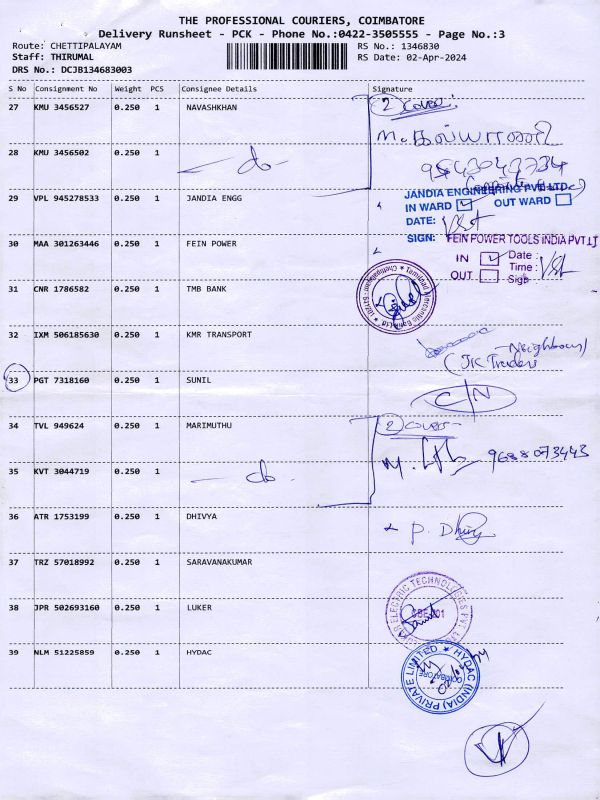 THE PROFESSIONAL COURIERS, COIMBATORE
Delivery Runsheet - PCK - Phone No.:0422-3505555 - Page No.:3
Route: CHETTIPALAYAM
Staff: THIRUMAL
DRS No.: DCJB134683003
RS No.: 1346830
RS Date: 02-Apr-2024
S No Consignment No Weight PCS Consignee Details Signature
27 KMU 3456527 0.250 1 NAVASHKHAN
2 cover
28 KMU 3456502 0.250 1 do
29 VPL 945278533 0.250 1 JANDIA ENGG
JANDIA ENGINEERING PVT LTD
IN WARD OUT WARD
DATE:
SIGN:
30 MAA 301263446 0.250 1 FEIN POWER
FEIN POWER TOOLS INDIA PVT LT
IN Date :
Time :
OUT Sign
31 CNR 1786582 0.250 1 TMB BANK
32 IXM 506185630 0.250 1 KMR TRANSPORT
Neighbour
(JK Traders
33 PGT 7318160 0.250 1 SUNIL
C/N
34 TVL 949624 0.250 1 MARIMUTHU
2 cover
9688073443
35 KVT 3044719 0.250 1 do
36 ATR 1753199 0.250 1 DHIVYA
P. Dhivy
37 TRZ 57018992 0.250 1 SARAVANAKUMAR
38 JPR 502693160 0.250 1 LUKER
ELECTRIC TECHNOLOGIES PVT. LTD
39 NLM 51225859 0.250 1 HYDAC
HYDAC (INDIA) PRIVATE LIMITED
COIMBATORE